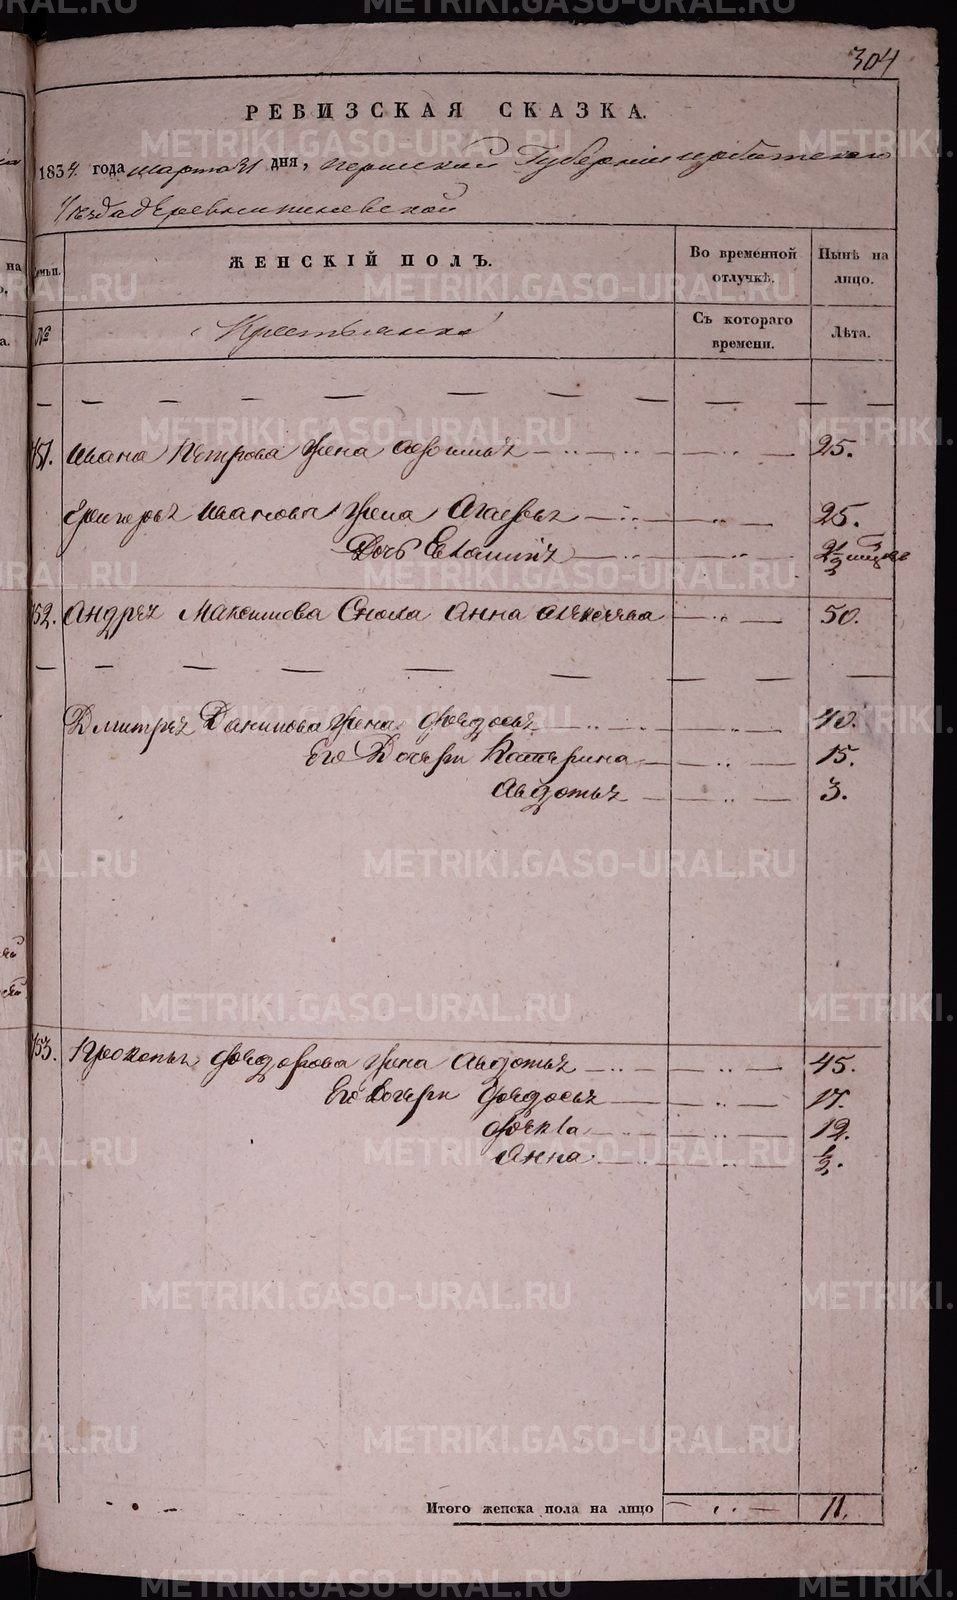 304
РЕВИЗСКАЯ СКАЗКА.
1834 года марта 31 дня, Пермской Губернии Ирбитскаго
уѣзда деревни
ЖЕНСКІЙ ПОЛЪ.
Во временной отлучкѣ.
Нынѣ на лицо.
№
Крестьянка
Съ котораго времени.
Лѣта.
Ивана Петрова жена 25.
Григорья Иванова жена Агафья 25.
Дочь
52. Андрея Максимова Сноха Анна Алексеева 50.
Дмитрея Данилова жена Федосья 40.
Его Дочери Катерина 15.
Авдотья 3.
53. Прокопья Федорова жена Авдотья 45.
Его Дочери Федосья 17.
Фекла 12.
Анна 1/2.
Итого женска пола на лицо 11.
METRIKI.GASO-URAL.RU